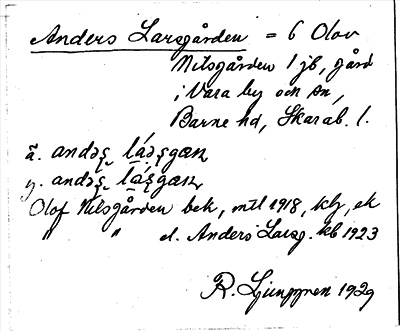 Anders Larsgården = 6 Olov
Nilsgården 1 jb, gård
i Vara by och sn,
Barne hd, Skarab. l.
ã. andəʂ láəʂgæɳ
y. andəʂ láʂgæɳ
Olof Nilsgården bek, mtl 1918, klj, ek
" " el. Anders Larsg. kb 1923
R. Ljunggren 1929